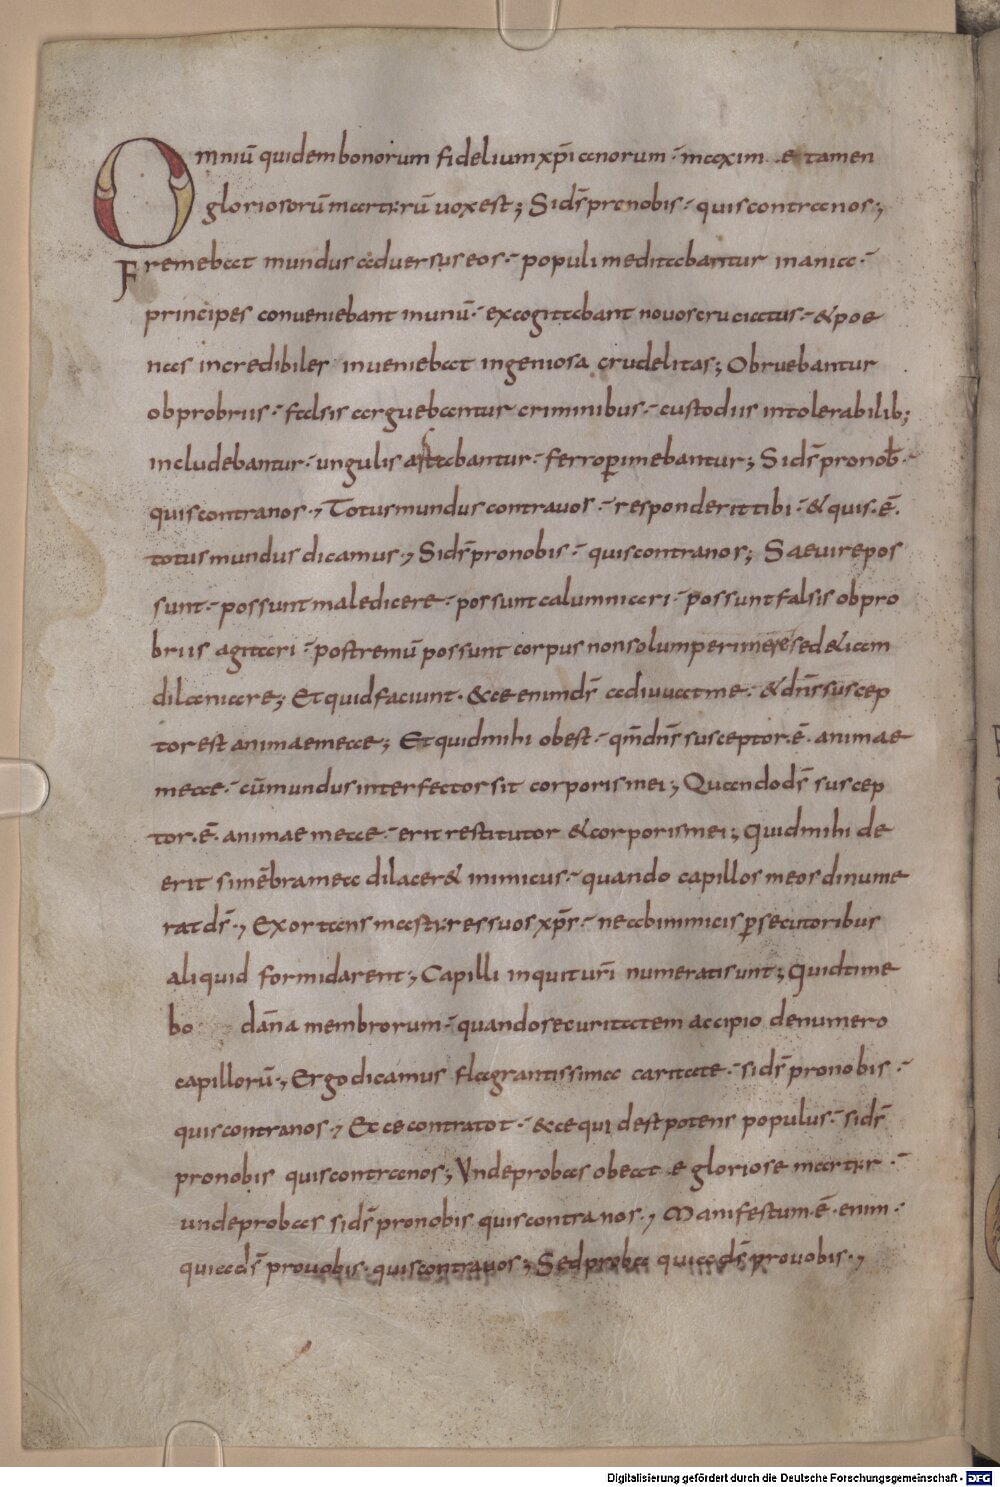 Omniū quidem bonorum fidelium xp̄ianorum· maxim e tamen
gloriosorū martyrū vox est; Si ds̄ pro nobis· quis contra nos;
Fremebat mundus adversus eos· populi meditabantur inania·
principes conveniebant in unū· excogitabant novos cruciatus· & poe
nas incredibiles inveniebat ingeniosa crudelitas; Obruebantur
obprobriis· falsis arguebantur criminibus· custodiis intolerabilib;
includebantur· ungulis bantur· ferro p̲imebantur; Si ds̄ pro nob̄·
quis contra nos; Totus mundus contra vos· responderit tibi· & quis·ē·
totus mundus dicamus; Si ds̄ pro nobis· quis contra nos; Saevire pos
sunt· possunt maledicere· possunt calumniari· possunt falsis obpro
briis agitari· postremū possunt corpus non solum perimere sed & iam
dilaniare; Et quid faciunt· Ecce enim ds̄ adiuvat me· & dn̄s suscep
tor est animae meae; Et quid mihi obest· qm̄ dn̄s susceptor·ē· animae
meae· cū mundus interfector sit corporis mei; Quando ds̄ suscep
tor·ē· animae meae· erit restitutor & corporis mei; Quid mihi de
erit si mēbra mea dilacer& inimicus· quando capillos meos dinume
rat ds̄; Exortans martyres suos xp̄s· ne ab inimicis p̲secutoribus
aliquid formidarent; Capilli inquit ur̄i numerati sunt; Quid time
bo dān̄a membrorum· quando securitatem accipio de numero
capillorū; Ergo dicamus flagrantissima caritate· si ds̄ pro nobis·
quis contra nos; Ecce contra tot· ecce quid est potens populus· si ds̄
pro nobis quis contra nos; Unde probas obeat e gloriose martyr·
unde probas si ds̄ pro nobis quis contra nos; Manifestum·ē· enim·
quia ds̄ pro vobis· quis contra vos; Sed proba quia ds̄ pro vobis;
Digitalisierung gefördert durch die Deutsche Forschungsgemeinschaft - DFG